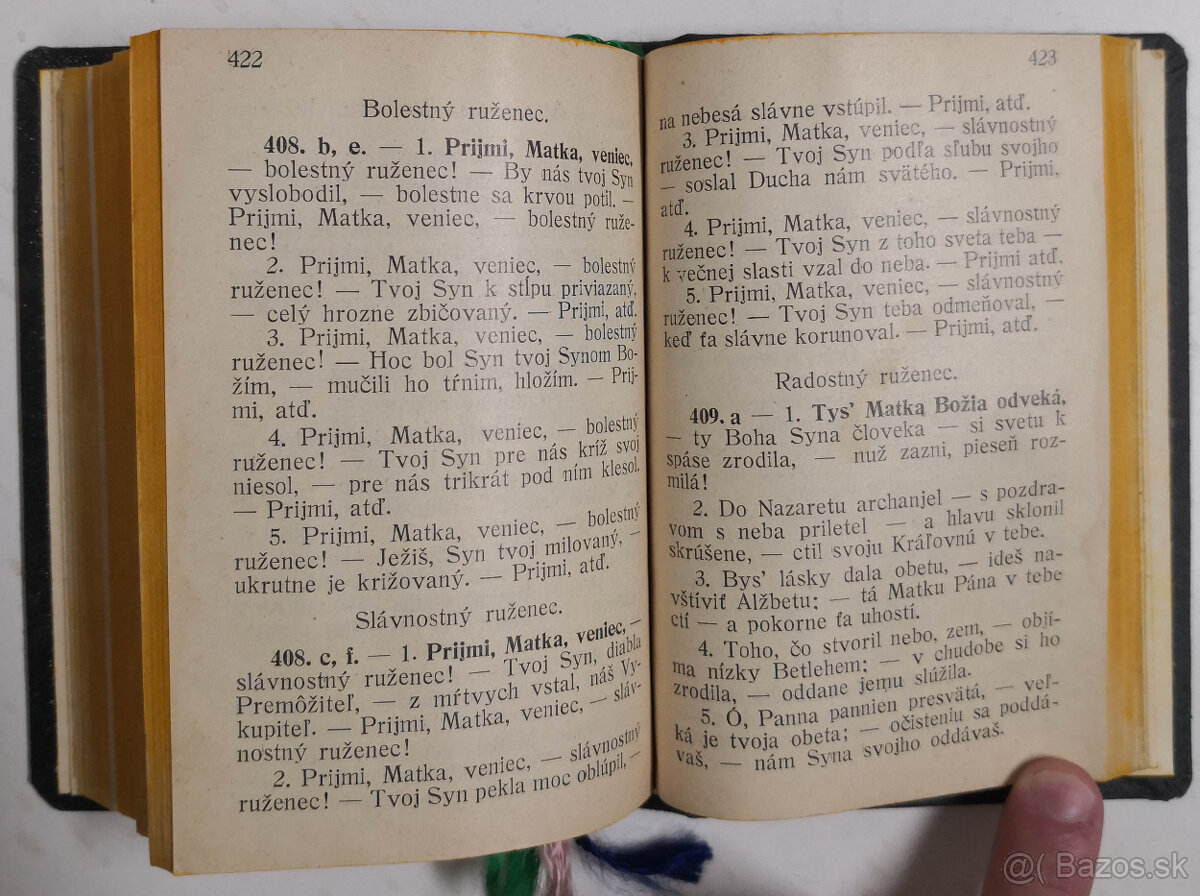 422
Bolestný ruženec.
408. b, e. — 1. Prijmi, Matka, veniec,
— bolestný ruženec! — By nás tvoj Syn
vyslobodil, — bolestne sa krvou potil. —
Prijmi, Matka, veniec, — bolestný ruže-
nec!
2. Prijmi, Matka, veniec, — bolestný
ruženec! — Tvoj Syn k stĺpu priviazaný,
— celý hrozne zbičovaný. — Prijmi, atď.
3. Prijmi, Matka, veniec, — bolestný
ruženec! — Hoc bol Syn tvoj Synom Bo-
žím, — mučili ho tŕním, hložím. — Prij-
mi, atď.
4. Prijmi, Matka, veniec, — bolestný
ruženec! — Tvoj Syn pre nás kríž svoj
niesol, — pre nás trikrát pod ním klesol.
— Prijmi, atď.
5. Prijmi, Matka, veniec, — bolestný
ruženec! — Ježiš, Syn tvoj milovaný, —
ukrutne je križovaný. — Prijmi, atď.
Slávnostný ruženec.
408. c, f. — 1. Prijmi, Matka, veniec, —
slávnostný ruženec! — Tvoj Syn, diabla
Premôžiteľ, — z mŕtvych vstal, náš Vy-
kupiteľ. — Prijmi, Matka, veniec, — sláv-
nostný ruženec!
2. Prijmi, Matka, veniec, — slávnostný
ruženec! — Tvoj Syn pekla moc oblúpil, —
423
na nebesá slávne vstúpil. — Prijmi, atď.
3. Prijmi, Matka, veniec, — slávnostný
ruženec! — Tvoj Syn podľa sľubu svojho
— soslal Ducha nám svätého. — Prijmi,
atď.
4. Prijmi, Matka, veniec, — slávnostný
ruženec! — Tvoj Syn z toho sveta teba —
k večnej slasti vzal do neba. — Prijmi atď.
5. Prijmi, Matka, veniec, — slávnostný
ruženec! — Tvoj Syn teba odmeňoval, —
keď ťa slávne korunoval. — Prijmi, atď.
Radostný ruženec.
409. a — 1. Tys' Matka Božia odveká,
— ty Boha Syna človeka — si svetu k
spáse zrodila, — nuž zazni, pieseň roz-
milá!
2. Do Nazaretu archanjel — s pozdra-
vom s neba priletel — a hlavu sklonil
skrúšene, — ctil svoju Kráľovnú v tebe.
3. Bys' lásky dala obetu, — ideš na-
vštíviť Alžbetu; — tá Matku Pána v tebe
ctí — a pokorne ťa uhostí.
4. Toho, čo stvoril nebo, zem, — objí-
ma nízky Betlehem; — v chudobe si ho
zrodila, — oddane jemu slúžila.
5. Ó, Panna pannien presvätá, — veľ-
ká je tvoja obeta; — očisteniu sa poddá-
vaš, — nám Syna svojho oddávaš.
@( Bazos.sk